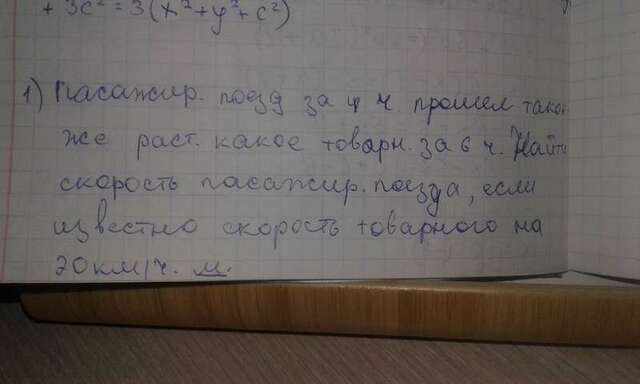 + 3c² = 3(x² + y² + c²)
1) Пасажир. поезд за 4 ч. прошел такое
же раст. какое товарн. за 6 ч. Найти
скорость пасажир. поезда, если
известно скорость товарного на
20 км/ч. м.